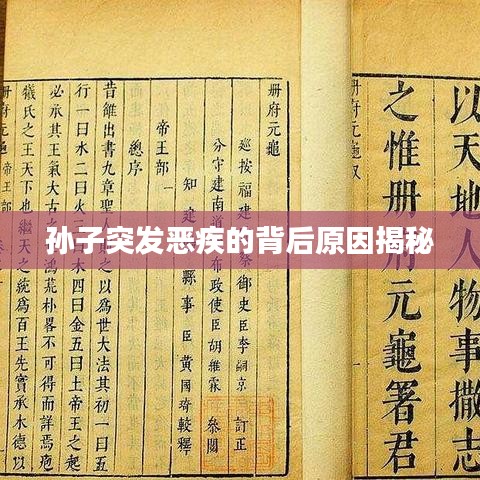 孙子突发恶疾的背后原因揭秘
以天地人物事撒志
之惟冊府元龜署君
冊府元龜
巡按福建御史臣李嗣京 訂正
分守建南道布政使臣胡維霖 參閱
知建縣事臣黃國琦較釋
帝王部
總序
昔雒出書九章之以爲世大法其初一曰五
行一曰水二曰火四曰金五曰土帝王之起
必承其王氣大古之鴻荒朴畧不可得而詳焉庖
犧氏之王天下也繼天之統爲百王先實承木德以